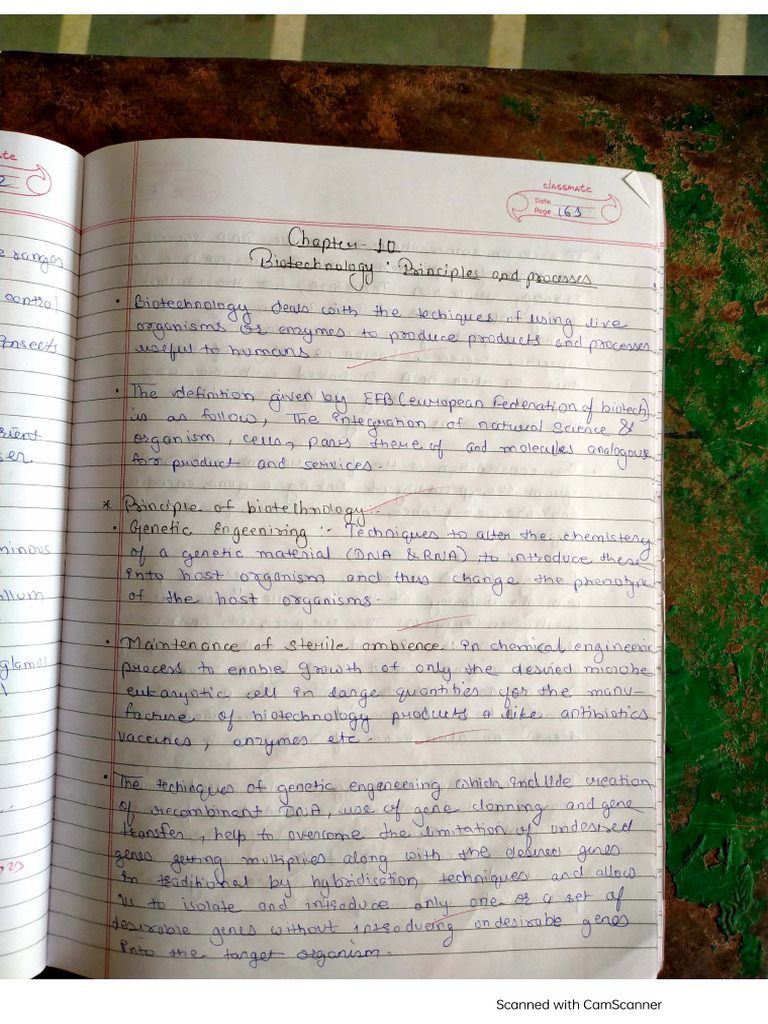 ate
2
e ranges
control
Insects
rient
er
minous
llum
glamos
23
classmate
Date
Page 163
Chapter-10
Biotechnology : Principles and processes
• Biotechnology deals with the techiques of using live
organisms or enzymes to produce products and processes
useful to humans.
• The definition given by EFB (european Federation of biotech)
is as follow, The integration of natural Science &
organism, cells, pars there of and molecules analogous
for product and services.
* Principle of biotechnology.
• Genetic Engeenizing :- Techniques to alter the chemistery
of a genetic material (DNA & RNA), to introduce these
into host organism and thus change the phenotype
of the host organisms.
• Maintenance of sterile ambience in chemical engineering
process to enable Growth of only the desired microbe
eukaryotic cell in large quantities for the manu-
facture of biotechnology products a like antibiotics
vaccines, enzymes etc.
• The techinques of genetic engeneering which incllide creation
of recombinent DNA, use of gene clonning and gene
transfer, help to overcome the limitation of undesired
genes getting multiplies along with the desired genes
in traditional by hybridisation techniques and allow
us to isolate and introduce only one or a set of
desirable genes without introducing undesirable genes
into the target organism.
Scanned with CamScanner